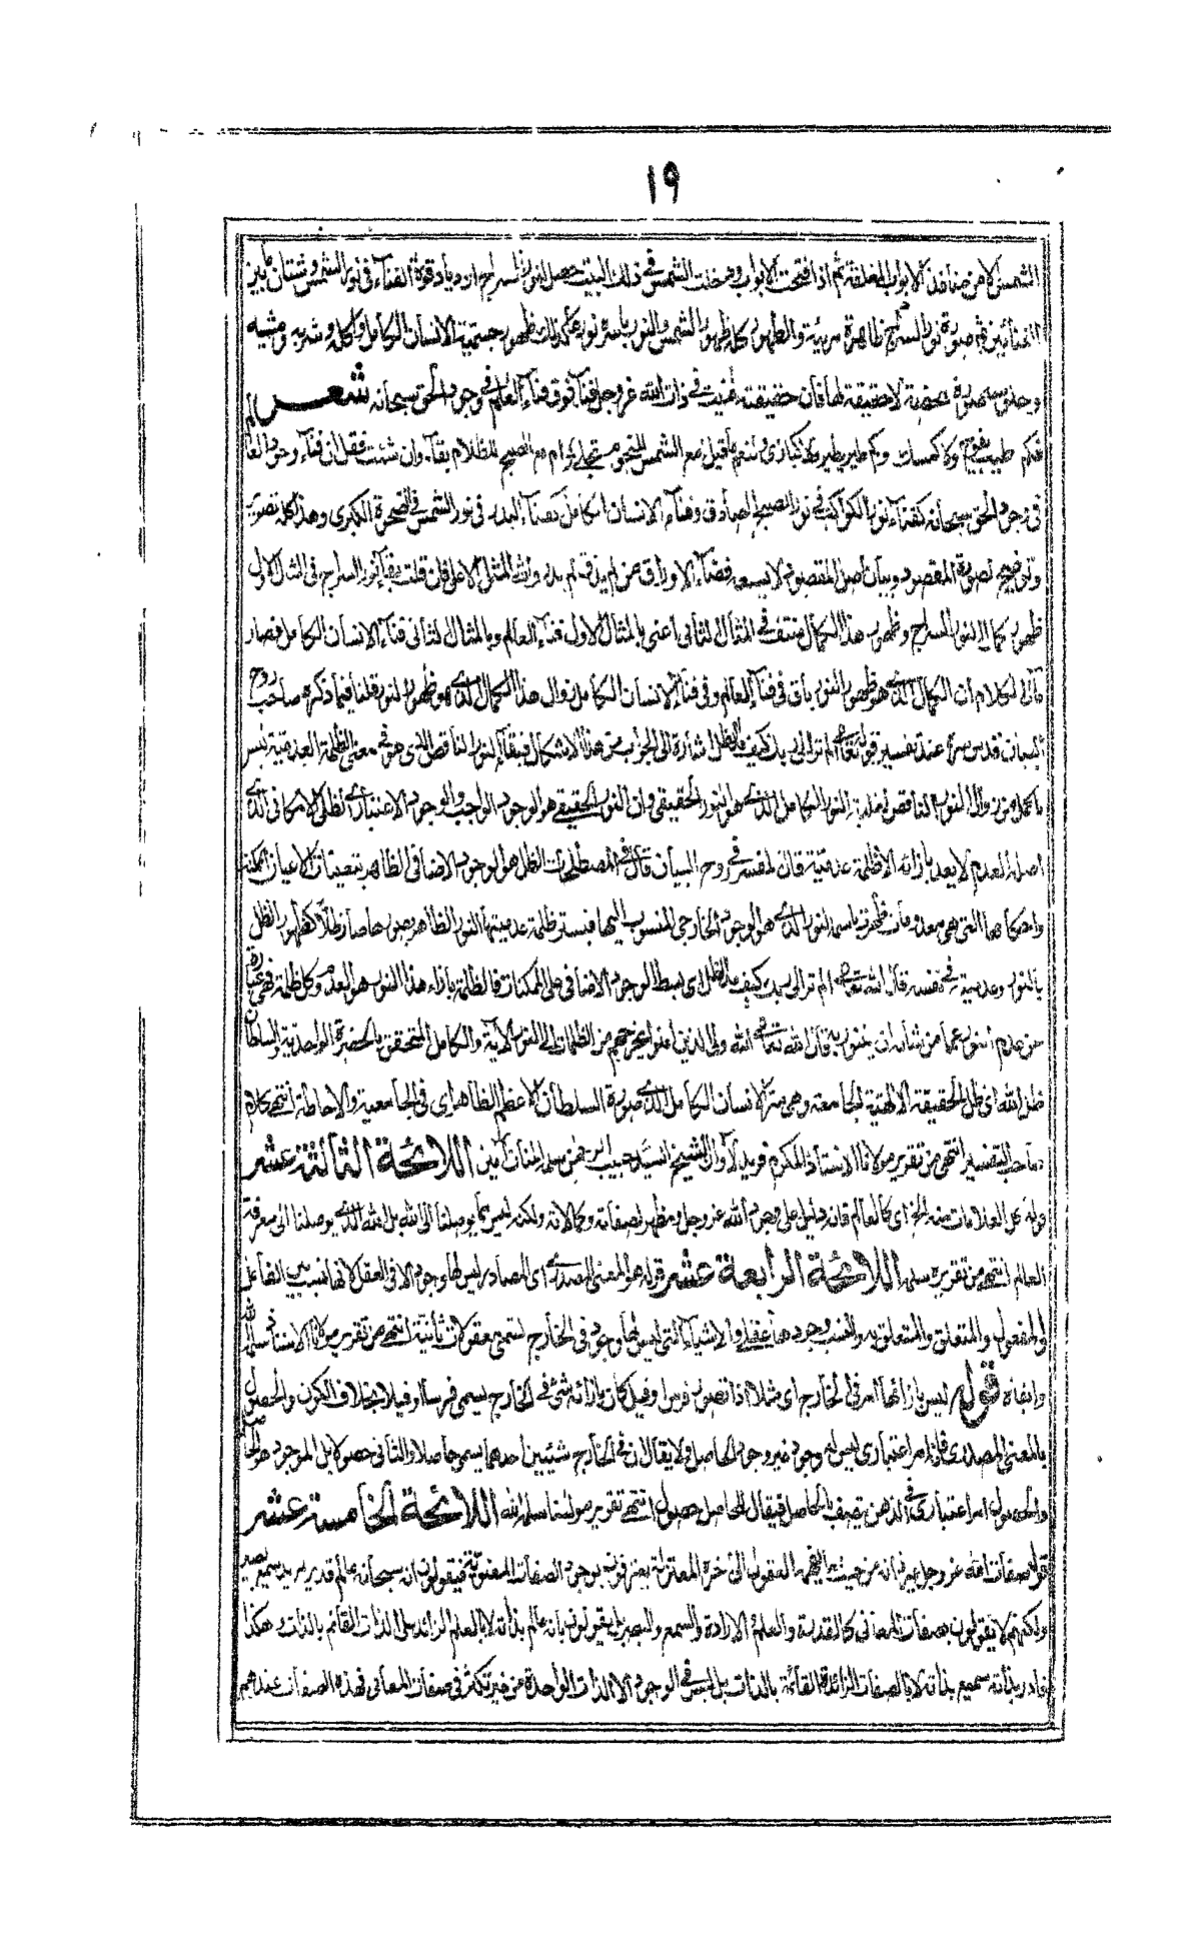 ١٩
الشمس الا من منافذ الابواب المغلقة ثم اذا فتحت الابواب ودخلت الشمس في ذلك البيت حصل لنور السراج ازدياد قوة الفناء في نور الشمس وشتان ما بين
الفنائين ثم صورة نور السراج ظاهرة مرئية والظهور كله ظهور الشمس والنور باسره نور ها كذلك ظهور جسمية الانسان الكامل واكله وشربه ومشيه
وجلوسه صورة محضة لا حقيقة لها فان حقيقته فنيت في ذات الله عز وجل فناء فوق فناء العالم في وجود الحق سبحانه شعر
فكم طيب يفوح ولا كمسك وكم طير يطير ولا كبازى ونعم ما قيل مع الشمس للنجوم تجلى ام مع الصبح للظلام بقاء وان شئت فقل ان فناء وجود العالم
في وجود الحق سبحانه كفناء نور الكواكب في نور الصبح الصادق وفناء الانسان الكامل كفناء البدر في نور الشمس في الضحوة الكبرى وهذا كله تصوير
وتوضيح لصورة المقصود وبيان اصل المقصود لا يسعه فضاء الاوراق من لم يذقه لم يدر ولله المثل الاعلى فان قلت بقاء نور السراج في المثال الاول
ظهور كمال النور السراج وظهور هذا الكمال منتف في المثال الثاني اعنى بالمثال الاول فناء العالم وبالمثال الثاني فناء الانسان الكامل فصار
مآل الكلام ان الكمال الذي هو ظهور النور باق في فناء العالم وفي فناء الانسان الكامل زوال هذا الكمال الذي هو ظهور النور قلنا فيما ذكره صاحب روح
البيان قدس سره عند تفسير قوله تعالى الم تر الى ربك كيف مد الظل اشارة الى الجواب من هذا الاشكال فبقاء النور الناقص الذي هو في معنى الظلمة العدمية ليس
باكمل من زوال النور الناقص لغلبة النور الكامل الذي هو النور الحقيقي وان النور الحقيقي هو الوجود الواجب والوجود الاعتبارى الظلى الامكانى الذي
اصله العدم لا يعد بازائه الا ظلمة عدمية قال المفسر في روح البيان قال في المصطلحات الظل هو الوجود الاضافى الظاهر بتعينات الاعيان الممكنة
واحكامها التي هي معدومات ظهرت باسمه النور الذي هو الوجود الخارجى المنسوب اليها فيستر ظلمة عدميتها النور الظاهر بصورها صار ظلا لظهور الظل
بالنور وعدميته في نفسه قال الله تعالى الم تر الى ربك كيف مد الظل اى بسط الوجود الاضافى على الممكنات فالظلمة بازاء هذا النور هو العدم وكل ظلمة فهي عبارة
عن عدم النور عما من شانه ان يتنور به قال الله تعالى الله ولى الذين امنوا يخرجهم من الظلمات الى النور الآية والكامل المتحقق بالحضرة الواحدية والسلطان
ظل الله اى ظل الحقيقة الالهية الجامعة وهى سر الانسان الكامل الذي صورة السلطان الاعظم الظاهر اى في الجامعية والاحاطة انتهى كلام
صاحب التفسير انتهى من تقرير مولانا الاستاذ المكرم فريد الاوان الشيخ السيد حبيب الرحمن سلمه المنان آمين اللائحة الثالثة عشر
قوله كل العلامات منه الخ اى كالعالم فانه دليل على وجود الله عز وجل ومظهر لصفاته وكمالاته ولكنه ليس مما يوصلنا الى الله بل الله الذي يوصلنا الى معرفة
العالم انتهى من تقريره سلمه اللائحة الرابعة عشر قوله هو المعنى المصدرى اى المصادر ليس لها وجود الا في العقل لانها نسب بين الفاعل
والمفعول والمتعلق والمتعلق به والنسب وجودها عقلى والاشياء التي ليس لها وجود في الخارج تسمى معقولات ثانية انتهى من تقرير مولانا الاستاذ سلمه الله
وابقاه قوله ليس بازائها امر في الخارج اى مثلا اذا تصور فرس او فيل كان بازائه شئ في الخارج يسمى فرسا او فيلا بخلاف الكون والحصول
بالمعنى المصدرى فانه امر اعتبارى ليس له وجود غير وجود الحاصل ولا يقال ان في الخارج شيئين احدهما يسمى حاصلا والثاني حصولا بل الموجود هو الحاصل
والحصول امر اعتبارى في الذهن يتصف به الحاصل فيقال للحاصل حصول انتهى تقرير مولانا سلمه الله اللائحة الخامسة عشر
قوله صفات الله عز وجل عين ذاته من حيث الخ المعتزلة يعترفون بوجود الصفات المعنوية فيقولون انه سبحانه عالم قدير مريد سميع بصير
ولكنهم لا يقولون بصفات المعانى كالقدرة والعلم والارادة والسمع والبصر بل يقولون بانه عالم بذاته لا بالعلم الزائد على الذات القائم بالذات وهكذا
قادر بذاته سميع بذاته لا بالصفات الزائدة القائمة بالذات بل ليس في الوجود الا الذات الواحدة من غير تكثر في صفات المعانى فهذه الصفات عندهم